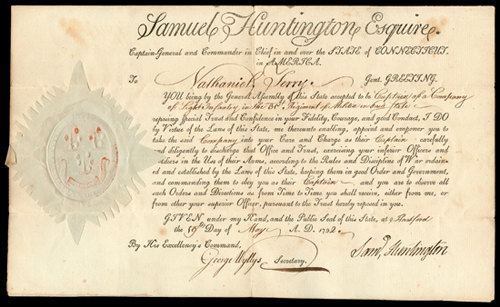 Samuel Huntington Esquire.
Captain-General and Commander in Chief in and over the STATE of CONNECTICUT,
in AMERICA.
To Nathaniel Terry Gent. GREETING.
YOU being by the General Assembly of this State accepted to be Captain of a Company
of Light Infantry in the Regiment of Militia in said State
reposing special Trust and Confidence in your Fidelity, Courage, and good Conduct, I DO
by Virtue of the Laws of this State, me thereunto enabling, appoint and impower you to
take the said Company into your Care and Charge as their Captain carefully
and diligently to discharge that Office and Trust, exercising your inferior Officers and
Soldiers in the Use of their Arms, according to the Rules and Discipline of War ordained
and established by the Laws of this State, keeping them in good Order and Government,
and commanding them to obey you as their Captain and you are to observe all
such Orders and Directions as from Time to Time you shall receive, either from me, or
from other your superior Officer, pursuant to the Trust hereby reposed in you.
GIVEN under my Hand, and the Public Seal of this State, at Hartford
the 19th Day of May A. D. 1792.
By His Excellency's Command,
George Wyllys Secretary.
Saml Huntington